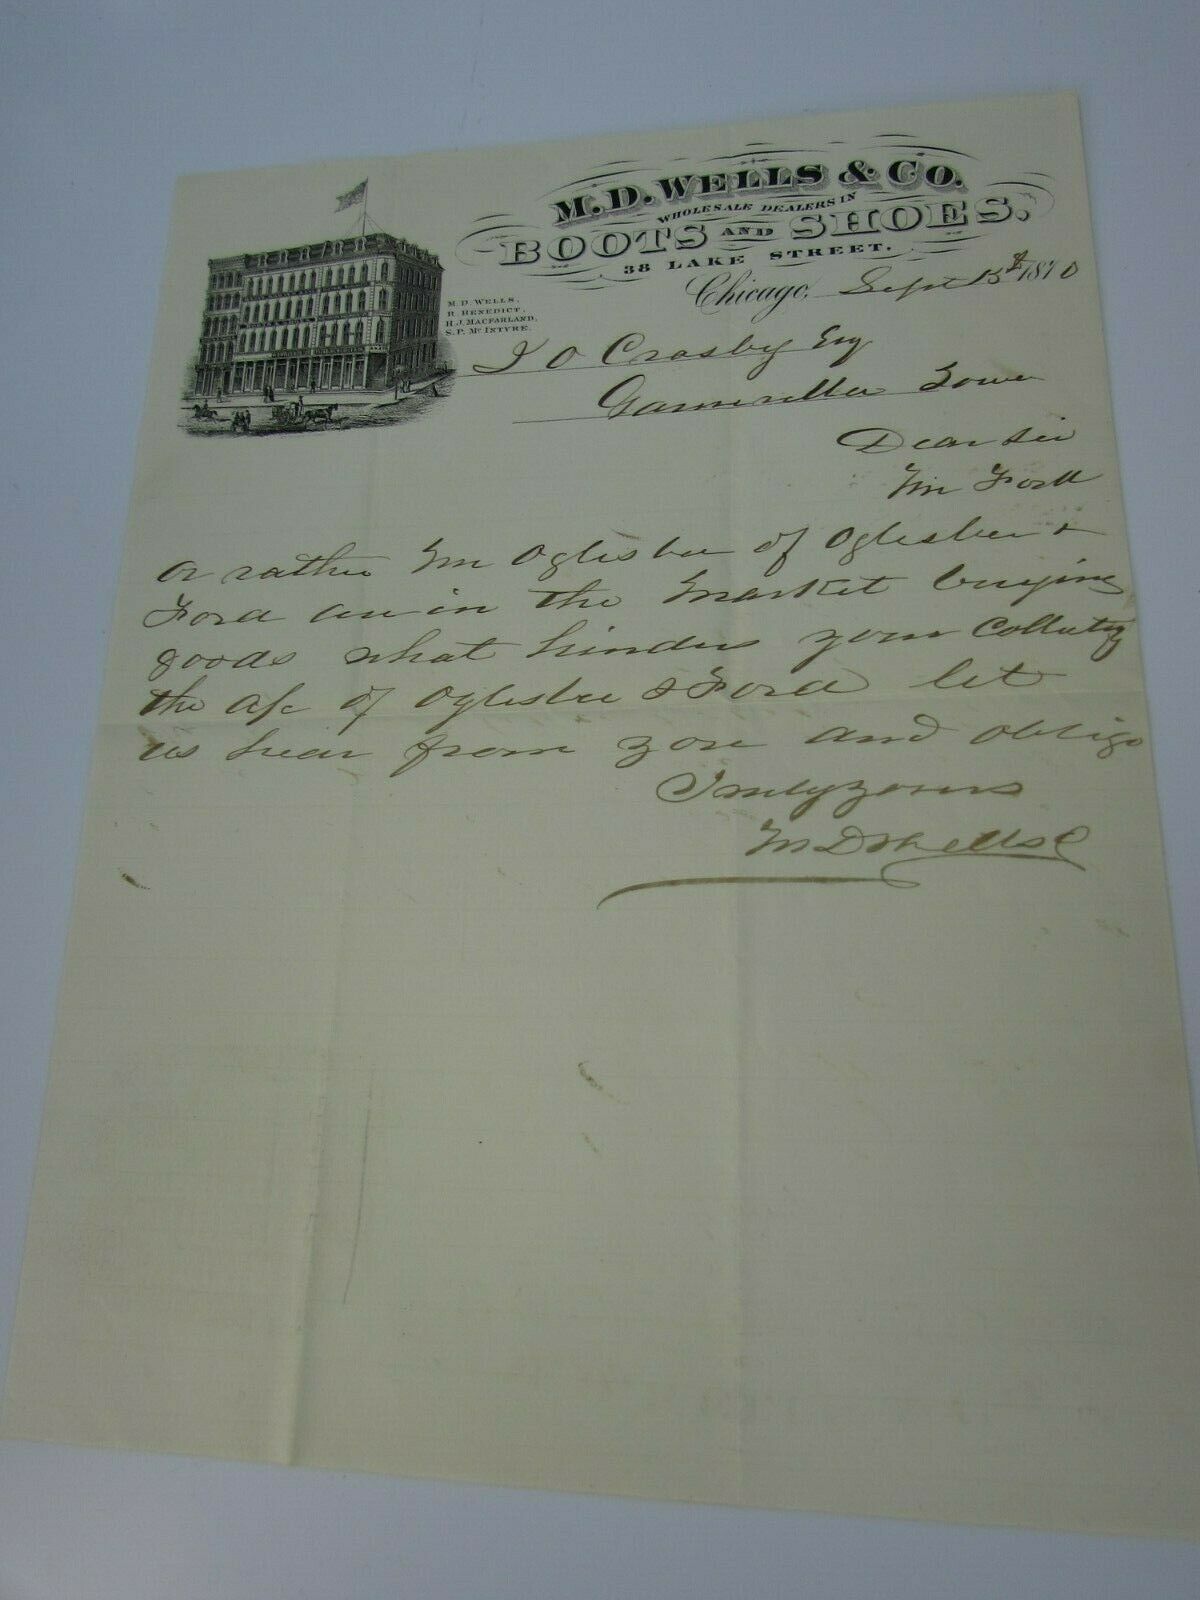 M.D. WELLS & CO.
WHOLESALE DEALERS IN
BOOTS AND SHOES,
38 LAKE STREET.
Chicago, Sept 15th 1870
M. D. WELLS,
R. BENEDICT,
H. J. MACFARLAND,
S. P. Mc INTYRE.
J O Crosby Esq
Garnavillo Iowa
Dear Sir
Mr Ford
or rather Mr Oglesbee of Oglesbee &
Ford are in the Market buying
goods what hinders your Collecting
the a/c of Oglesbee & Ford let
us hear from you and oblige
Truly yours
M D Wells & C